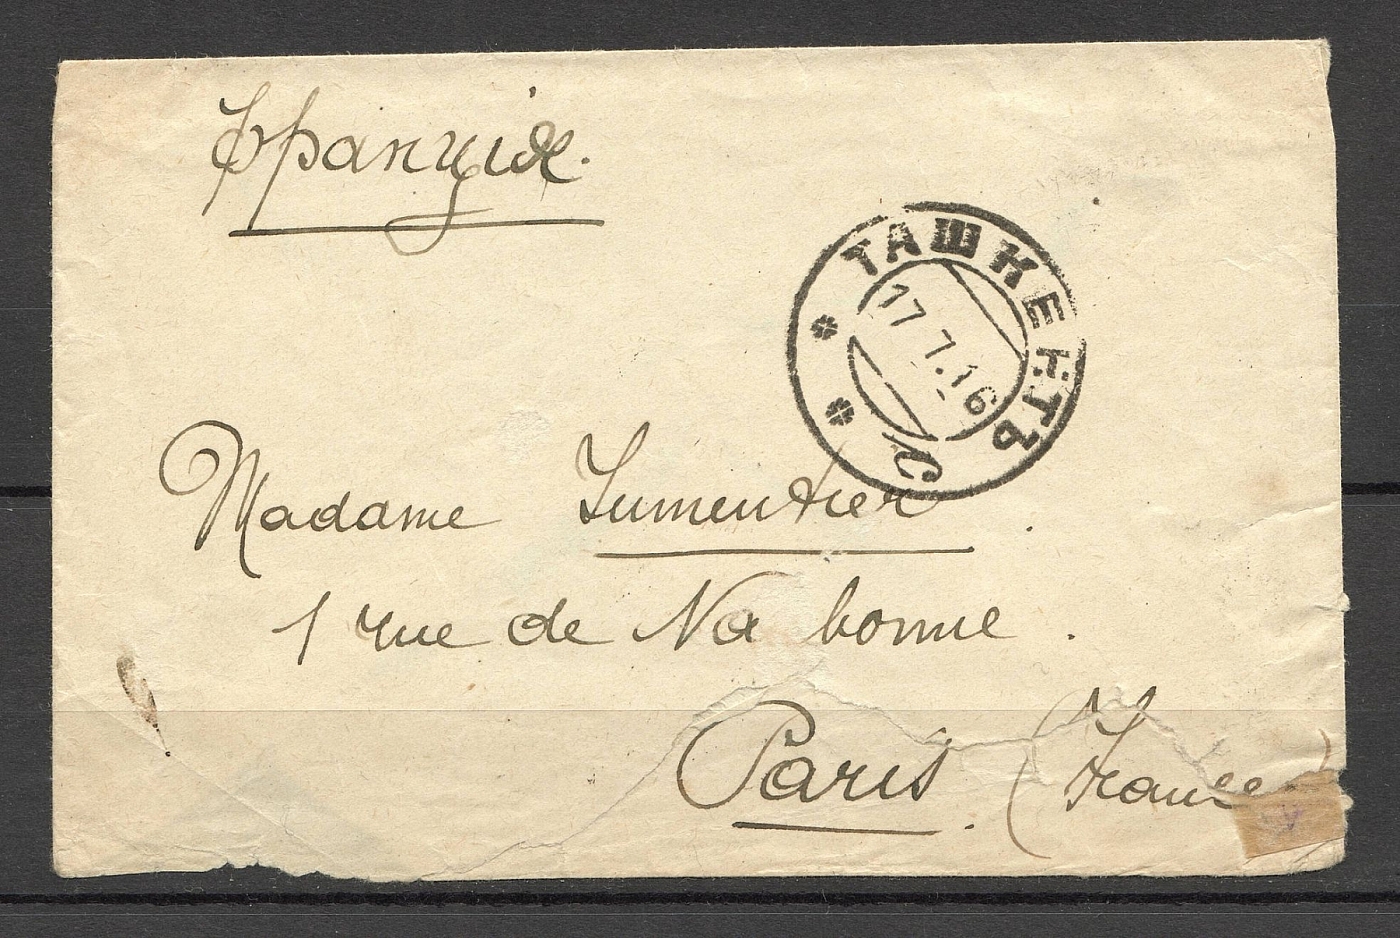 Франція.
ТАШКЕНТЪ
17.7.16
Madame Lumentier.
1 rue de Na bonne.
Paris. (France